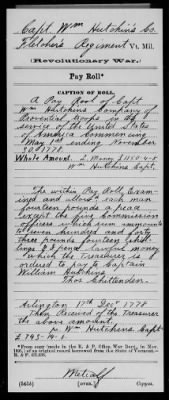 Capt. Wm Hutchins Co.
Fletcher's Regiment Vt. Mil.
(Revolutionary War.)
Pay Roll*
CAPTION OF ROLL.
A Pay Rool of Capt
Wm Hutchins Company of
Provential troops in the
service of the United States
of America Commencing
May 1st ending November
1778
Whole Amount. L Money £
Wm Hutchins Capt.
The within Pay Roll Exam-
ined and allow'd each man
fourteen pounds a peace
except the five Commission
officers which sum amounts
to seven hundred and forty
three pounds fourteen shil-
lings lawful money
which the Treasurer is
ordered to pay to Captain
William Hutchins
Thos Chittenden.
Arlington 17th Decr 1778
Then Received of the Treasurer
the above amount.
Wm Hutchins Capt
£ 743-14-
*From copy (made in the R. & P. Office, War Dept., in
of an original record borrowed from the State of Vermont.—
R. & P.
Metcalf
(over.)
Copyist.